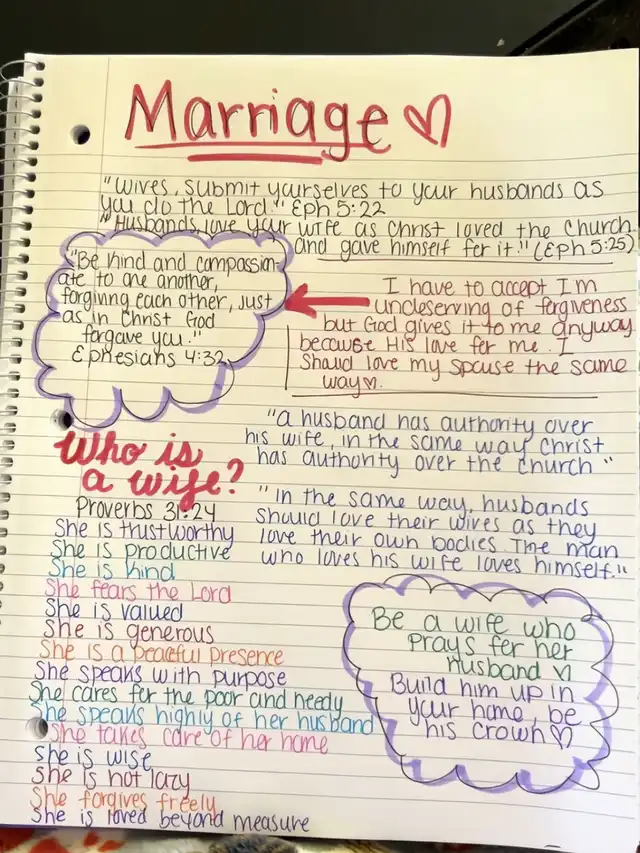 Marriage ♡
"Wives, submit yourselves to your husbands as
you do the Lord." Eph 5:22
"Husbands, love your wife as Christ loved the Church
and gave himself for it." (Eph 5:25)
"Be kind and compassion-
ate to one another,
forgiving each other, just
as in Christ God
forgave you."
Ephesians 4:32
I have to accept I'm
undeserving of forgiveness
but God gives it to me anyway
because His love for me. I
should love my spouse the same
way♡.
"a husband has authority over
his wife, in the same way Christ
has authority over the church"
"In the same way, husbands
should love their wives as they
love their own bodies. The man
who loves his wife loves himself."
Who is
a wife?
Proverbs 31:24
She is trustworthy
She is productive
She is kind
She fears the Lord
She is valued
She is generous
She is a peaceful presence
She speaks with purpose
She cares for the poor and needy
She speaks highly of her husband
She takes care of her home
She is wise
She is not lazy
She forgives freely
She is loved beyond measure
Be a wife who
prays for her
husband ♡
Build him up in
your home, be
his crown♡